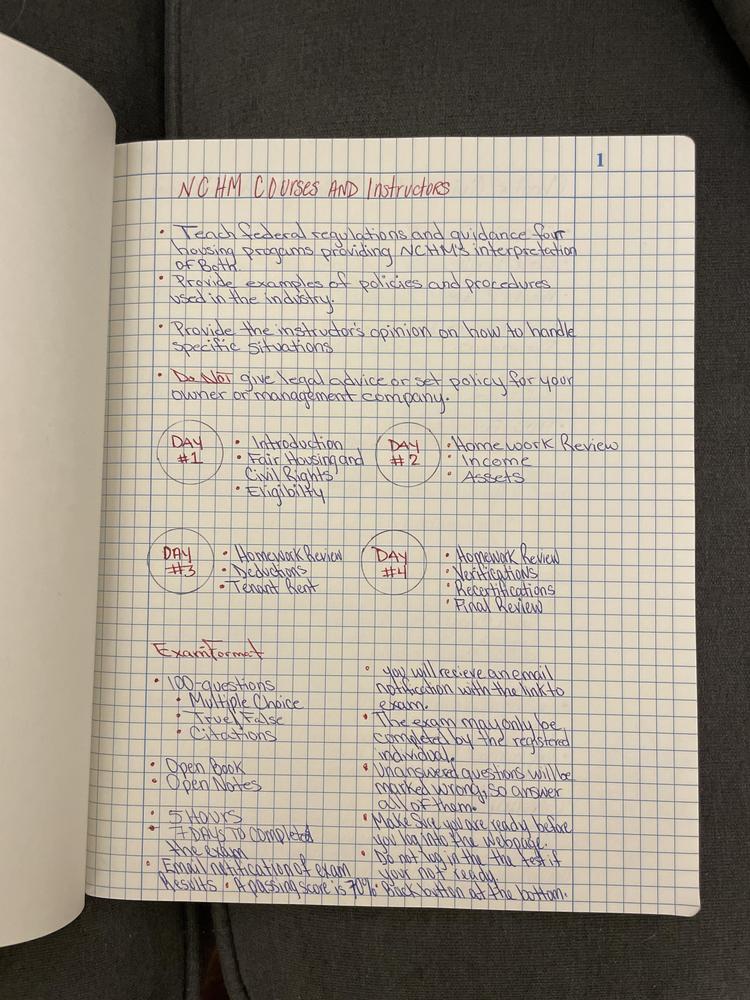 1
NCHM COurses AND Instructors
• Teach federal regulations and guidance for
housing progams providing NCHM's interpretation
of Both.
• Provide examples of policies and procedures
used in the industry.
• Provide the instructor's opinion on how to handle
specific situations
• Do NOT give legal advice or set policy for your
owner or management company.
DAY
#1
• Introduction
• Fair Housing and
Civil Rights
• Eligibility
DAY
#2
• Homework Review
• Income
• Assets
DAY
#3
• Homework Review
• Deductions
• Tenant Rent
DAY
#4
• Homework Review
• Verifications
• Recertifications
• Final Review
Exam Format
• 100-questions
• Multiple Choice
• True/False
• Citations
• Open Book
• Open Notes
• 5 HOURS
• 7 DAYS TO Completed
the exam
• Email notification of exam
Results • A passing score is 70%
• you will recieve an email
notification with the link to
exam.
• The exam may only be
completed by the registered
individual.
• Unanswered questions will be
marked wrong, so answer
all of them.
• Make Sure you are ready before
you log into the webpage.
• Do not log in the the test if
your not ready.
• Back button at the bottom.